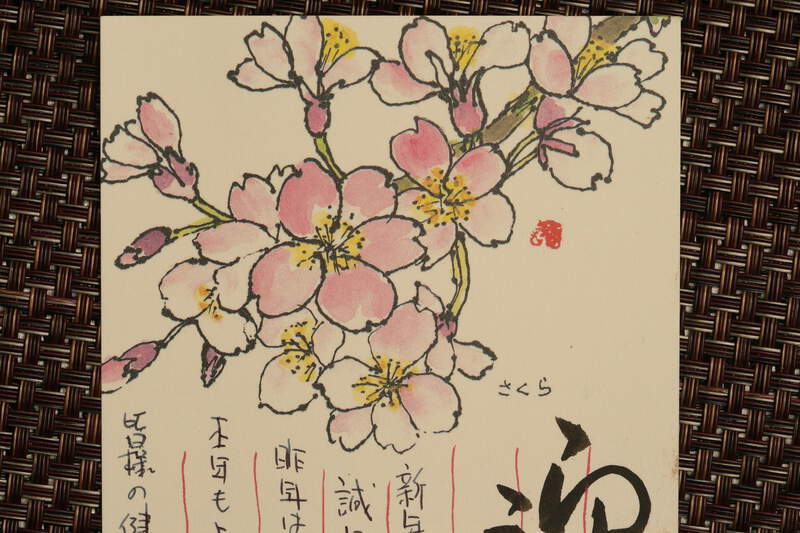 さくら
迎
新年
誠に
昨年は
本年もよ
皆様の健